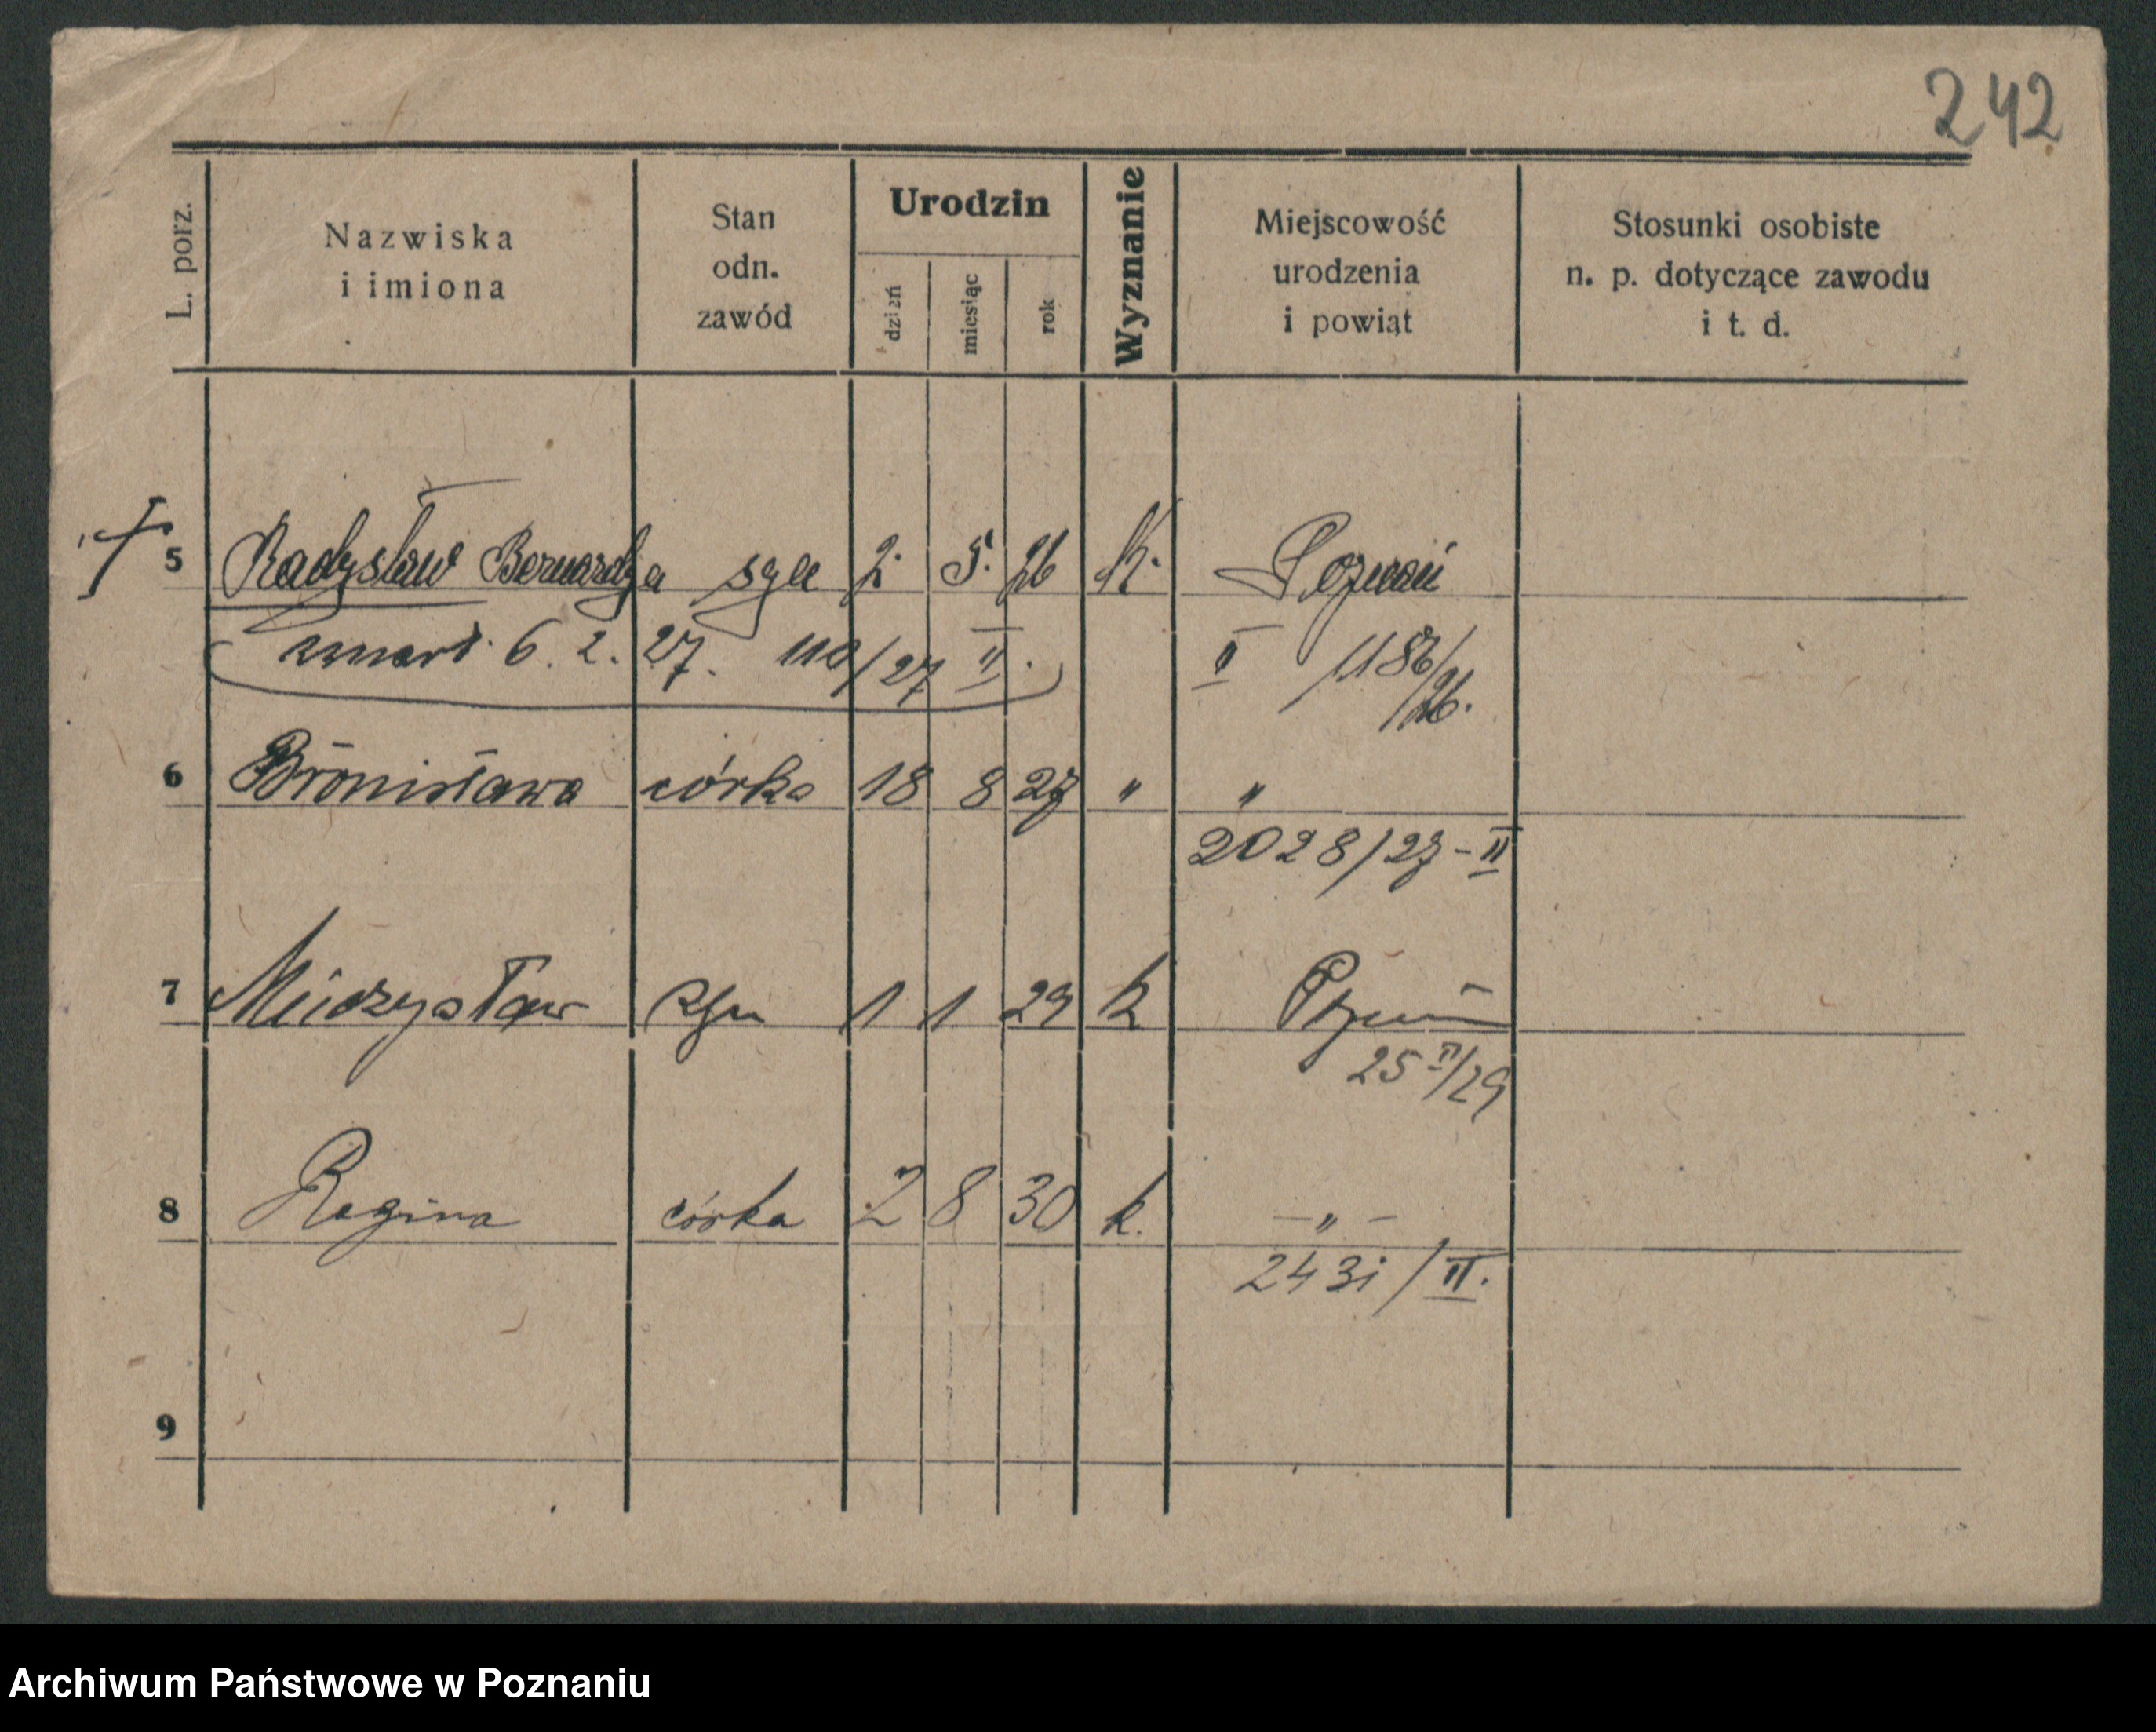 242
L. porz.
Nazwiska
i imiona
Stan
odn.
zawód
Urodzin
dzień
miesiąc
rok
Wyznanie
Miejscowość
urodzenia
i powiat
Stosunki osobiste
n. p. dotyczące zawodu
i t. d.
5 Radysław syn 2. 5. 26 K. Poznań
zmarł. 6. 2. 27. 110/27 II. II 1186/26.
6 Bronisława córka 18 8 27 " "
2028/27-II
7 Mieczysław syn 1 1 29 k Poznań
25 II/29
8 Regina córka 2 8 30 k. - " -
2431/II.
9
Archiwum Państwowe w Poznaniu